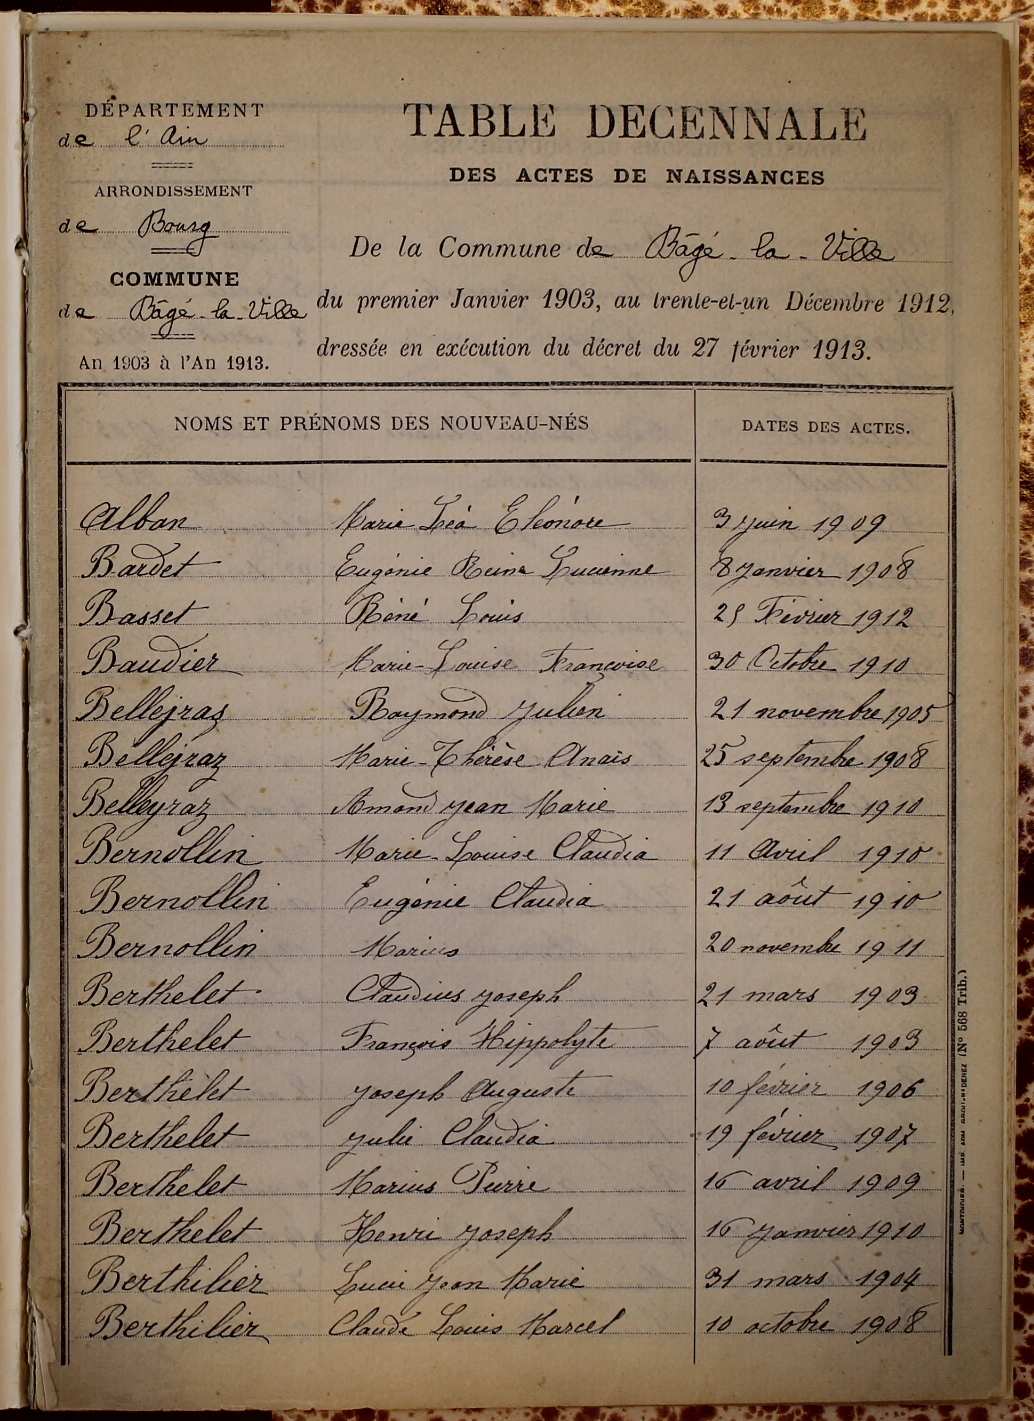 DÉPARTEMENT
de l'Ain
ARRONDISSEMENT
de Bourg
COMMUNE
de Bâgé-la-Ville
An 1903 à l'An 1913.
TABLE DECENNALE
DES ACTES DE NAISSANCES
De la Commune de Bâgé-la-Ville
du premier Janvier 1903, au trente-et-un Décembre 1912,
dressée en exécution du décret du 27 février 1913.
NOMS ET PRÉNOMS DES NOUVEAU-NÉS DATES DES ACTES.
Alban Marie Léa Eléonore 3 juin 1909
Bardet Eugénie Reine Lucienne 8 janvier 1908
Basset Réné Louis 25 Février 1912
Baudier Marie-Louise Françoise 30 Octobre 1910
Bellejras Raymond Julien 21 novembre 1905
Bellejraz Marie-Thérèse Anaïs 25 septembre 1908
Belleyraz Amand Jean Marie 13 septembre 1910
Bernollin Marie-Louise Claudia 11 Avril 1910
Bernollin Eugénie Claudia 21 aôut 1910
Bernollin Marius 20 novembre 1911
Berthelet Claudius Joseph 21 mars 1903
Berthelet François Hippolyte 7 aôut 1903
Berthelet Joseph Auguste 10 février 1906
Berthelet Julie Claudia 19 février 1907
Berthelet Marius Pierre 16 avril 1909
Berthelet Henri Joseph 16 Janvier 1910
Berthilier Jean Marie 31 mars 1904
Berthilier Claude Louis Marcel 10 octobre 1908
(N° 568 Trib.)